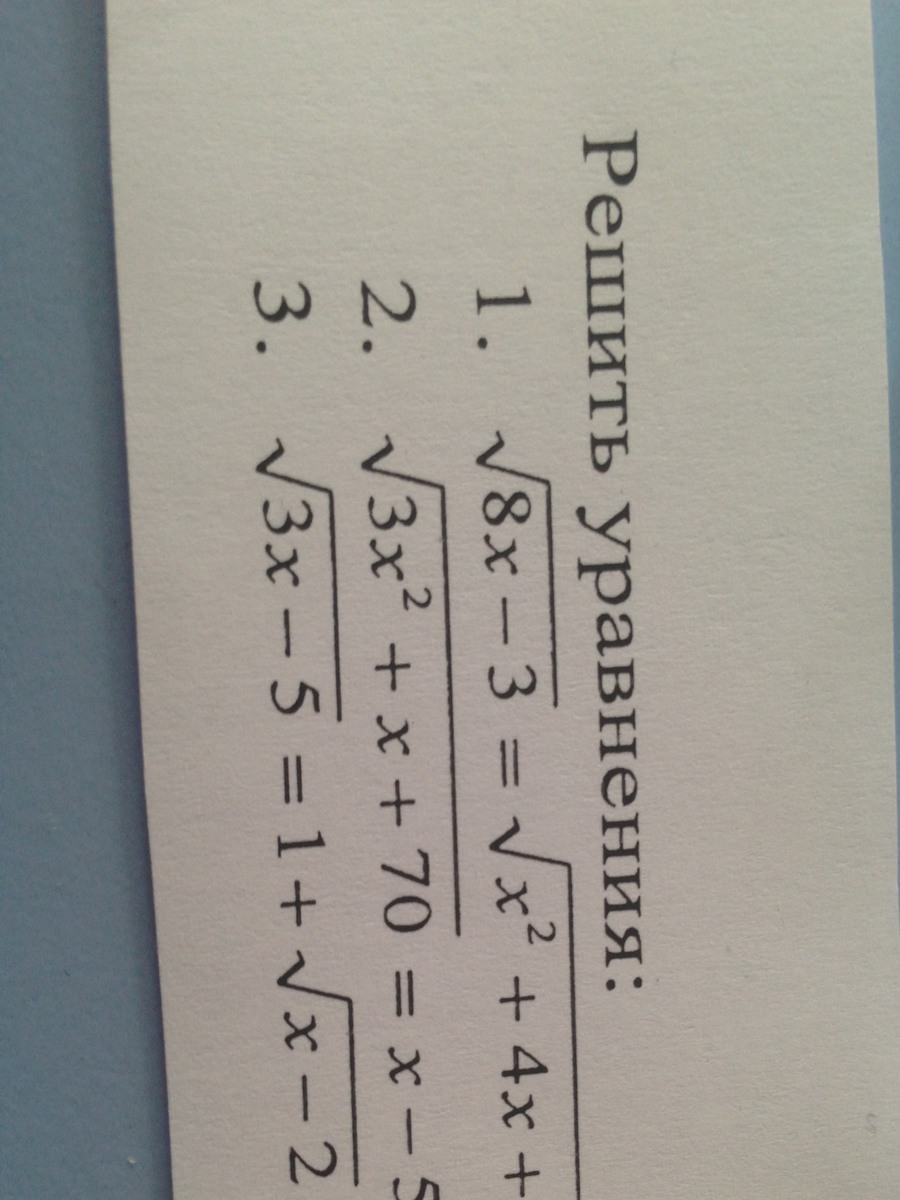 Решить уравнения:
1. √(8x − 3) = √(x² + 4x +
2. √(3x² + x + 70) = x − 5
3. √(3x − 5) = 1 + √(x − 2)